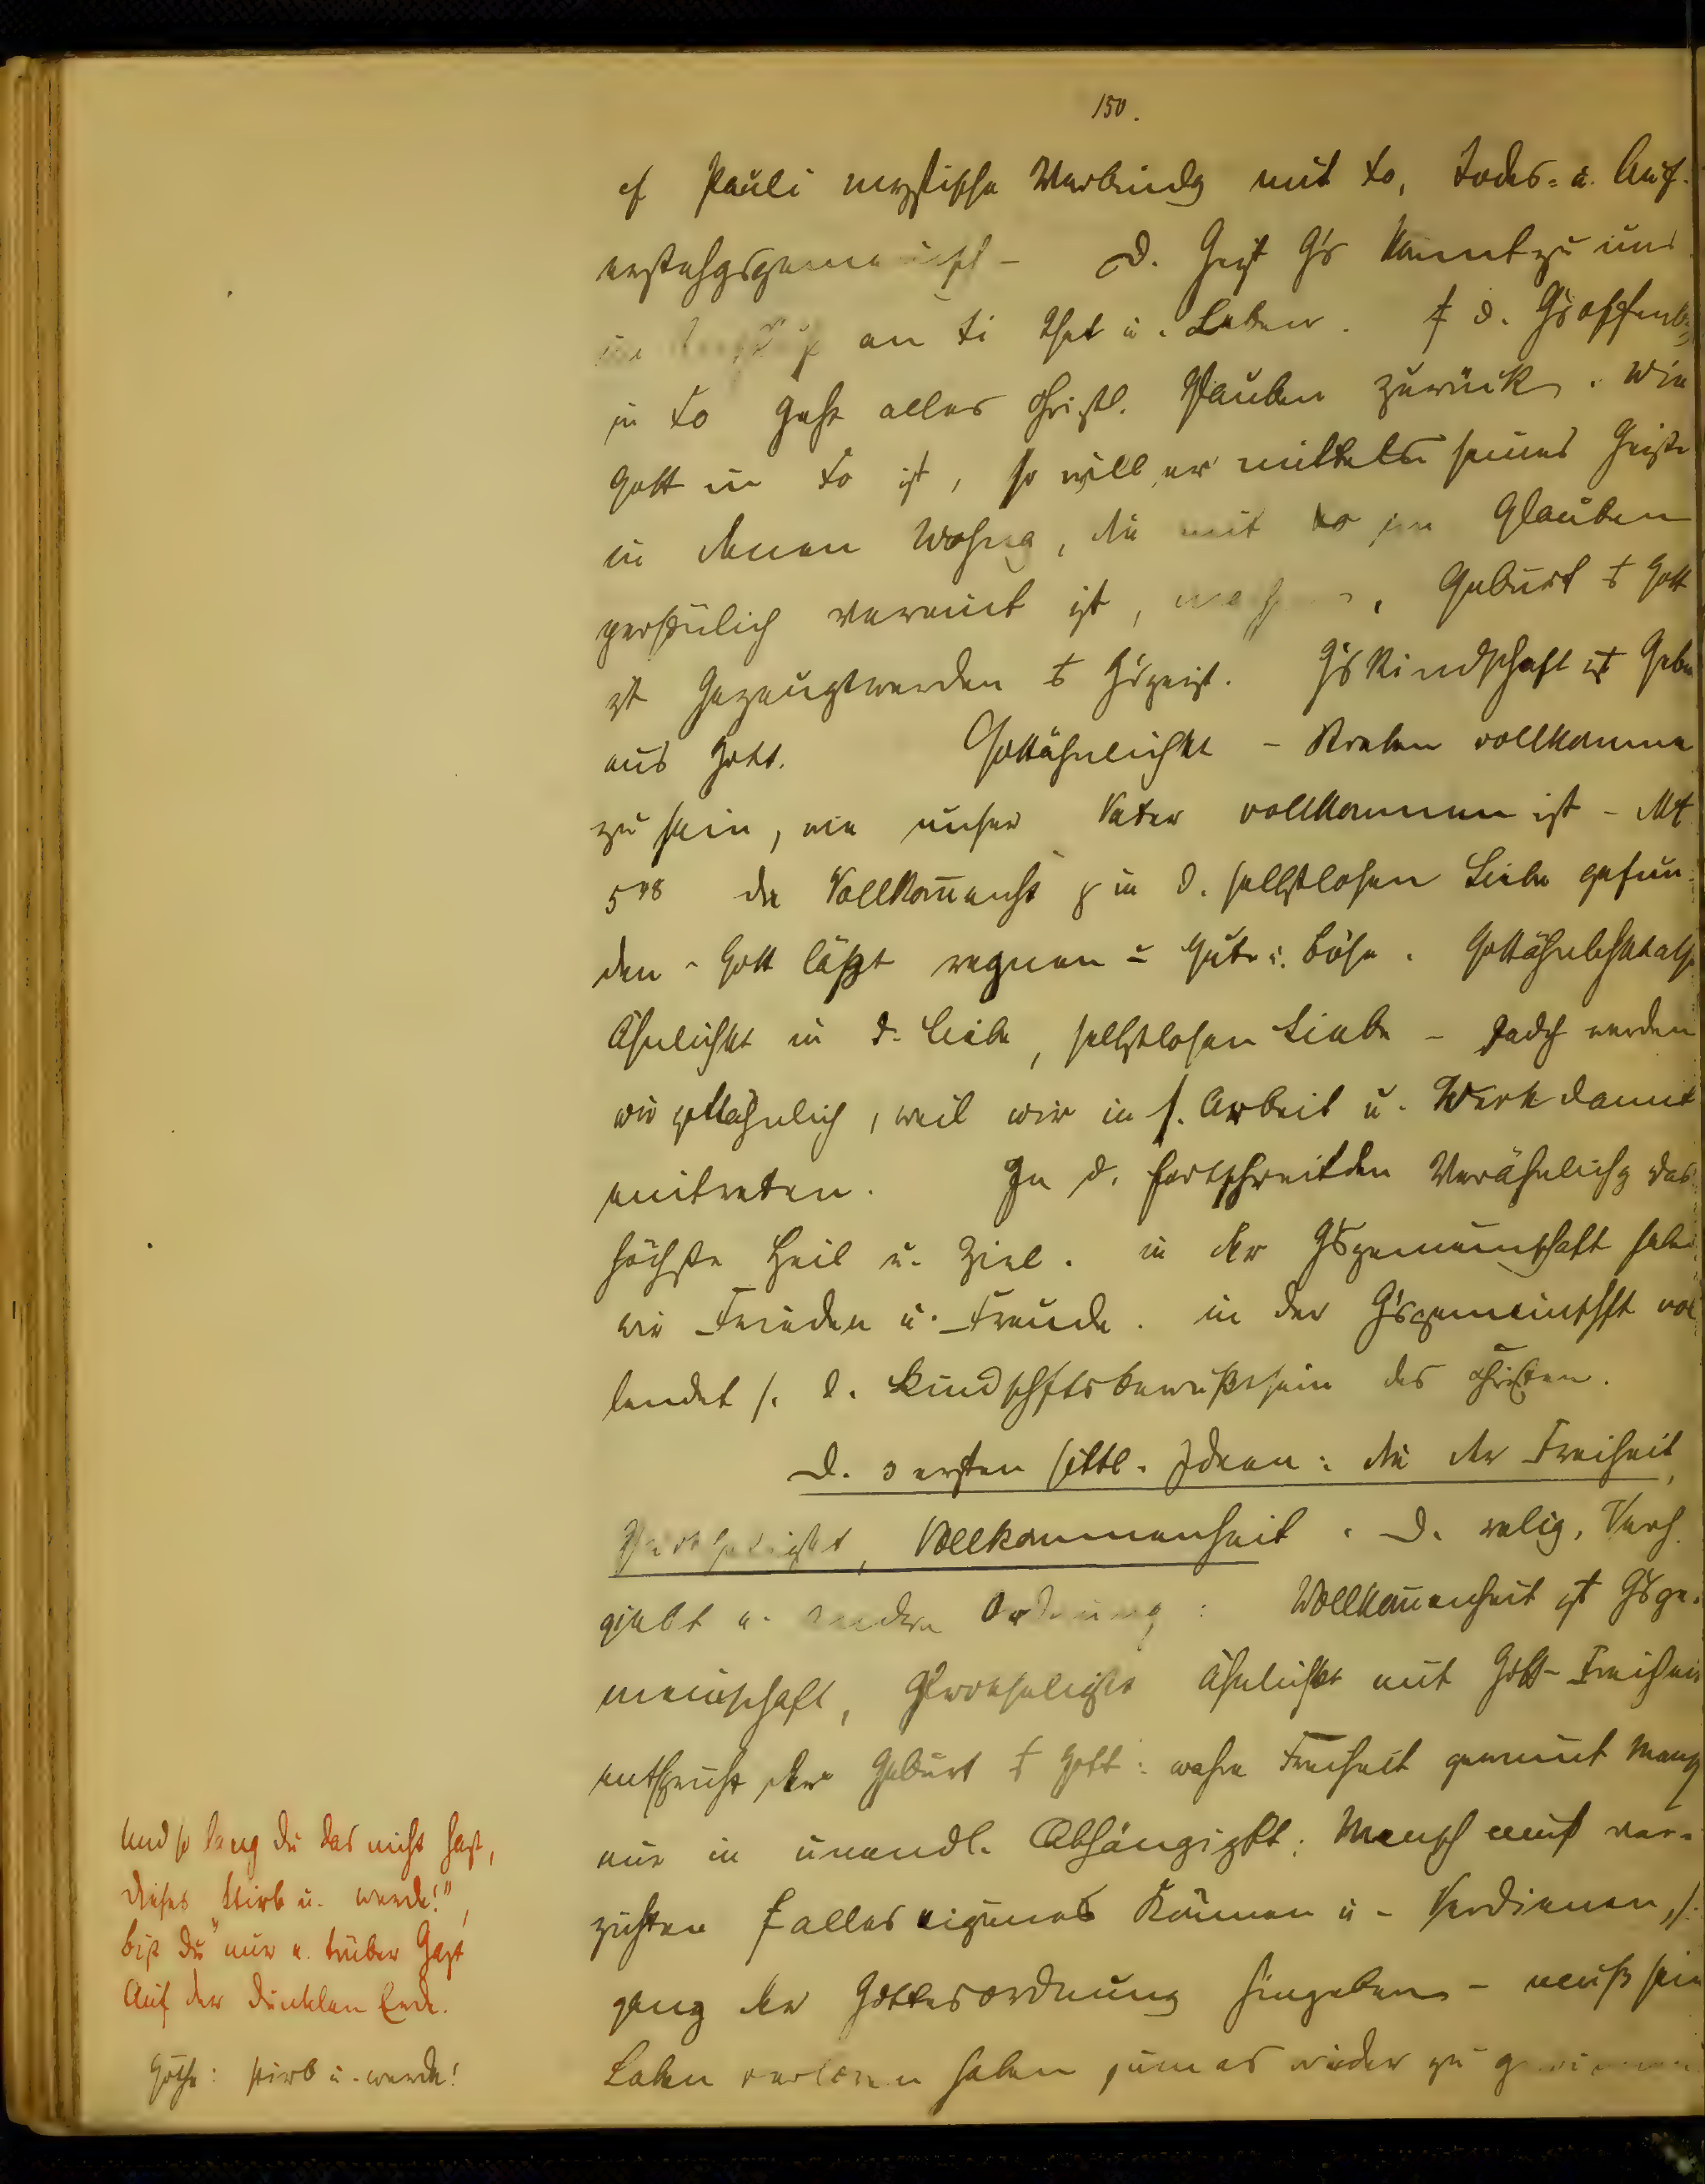 150.
cf Pauli mystische Verbindg mit Xo, Todes- u. Auf-
erstehgsgemeinsch – D. Geist G's kommt zu uns
an Xi That u. Leben. f d. G'soffenb
in Xo geht alles christl. Glauben zurück. Wie
Gott in Xo ist, so will er mittelst seines Geistes
in denen Wohng, die mit Xo im Glauben
persönlich vereint ist, Geburt t Gott
ist Gezeugtwerden t G'sgeist. G'skindschaft ist Gebu
aus Gott. Gottähnlichkt – Streben vollkomme
zu sein, wie unser Vater vollkommen ist – Mt
5⁴⁸ die Vollkom̄enht in d. selbstlosen Liebe gefun-
den – Gott läßt regnen Gute u. Böse. Gottähnlichkt also
Ähnlichkt in d. Liebe, selbstlosen Liebe – Dadch werden
wir gottähnlich, weil wir in s. Arbeit u. Werk damit
eintreten. In d. fortschreitden Verähnlichg das
höchste Heil u. Ziel. in der G'sgemeinschaft habe
wir Frieden u. Freude. in der G'sgemeinschft vol
lendet s. d. Kindschftsbewußtsein des Christen.
D. 3 ersten sittl. Ideen: die der Freiheit,
Vollkommenheit. D. relig. Verh.
giebt e. andere Ordnung: Vollkom̄enheit ist G'sge-
meinschaft, Ähnlichkt mit Gott – Freiheit
entspricht der Geburt t Gott: wahre Freiheit gewinnt Mensch
nur in unendl. Abhängigkt: Mensch muß ver-
zichten f alles eigenes Können u – Verdienen, s.
ganz der Gottesordnung hingeben – muß sein
Leben verloren haben, um es wieder zu gewinnen
Und so lang du das nicht hast,
dieses "Stirb u. werde!",
bist du nur e. trüber Gast
Auf der dunklen Erde.
Göthe: stirb u. werde!